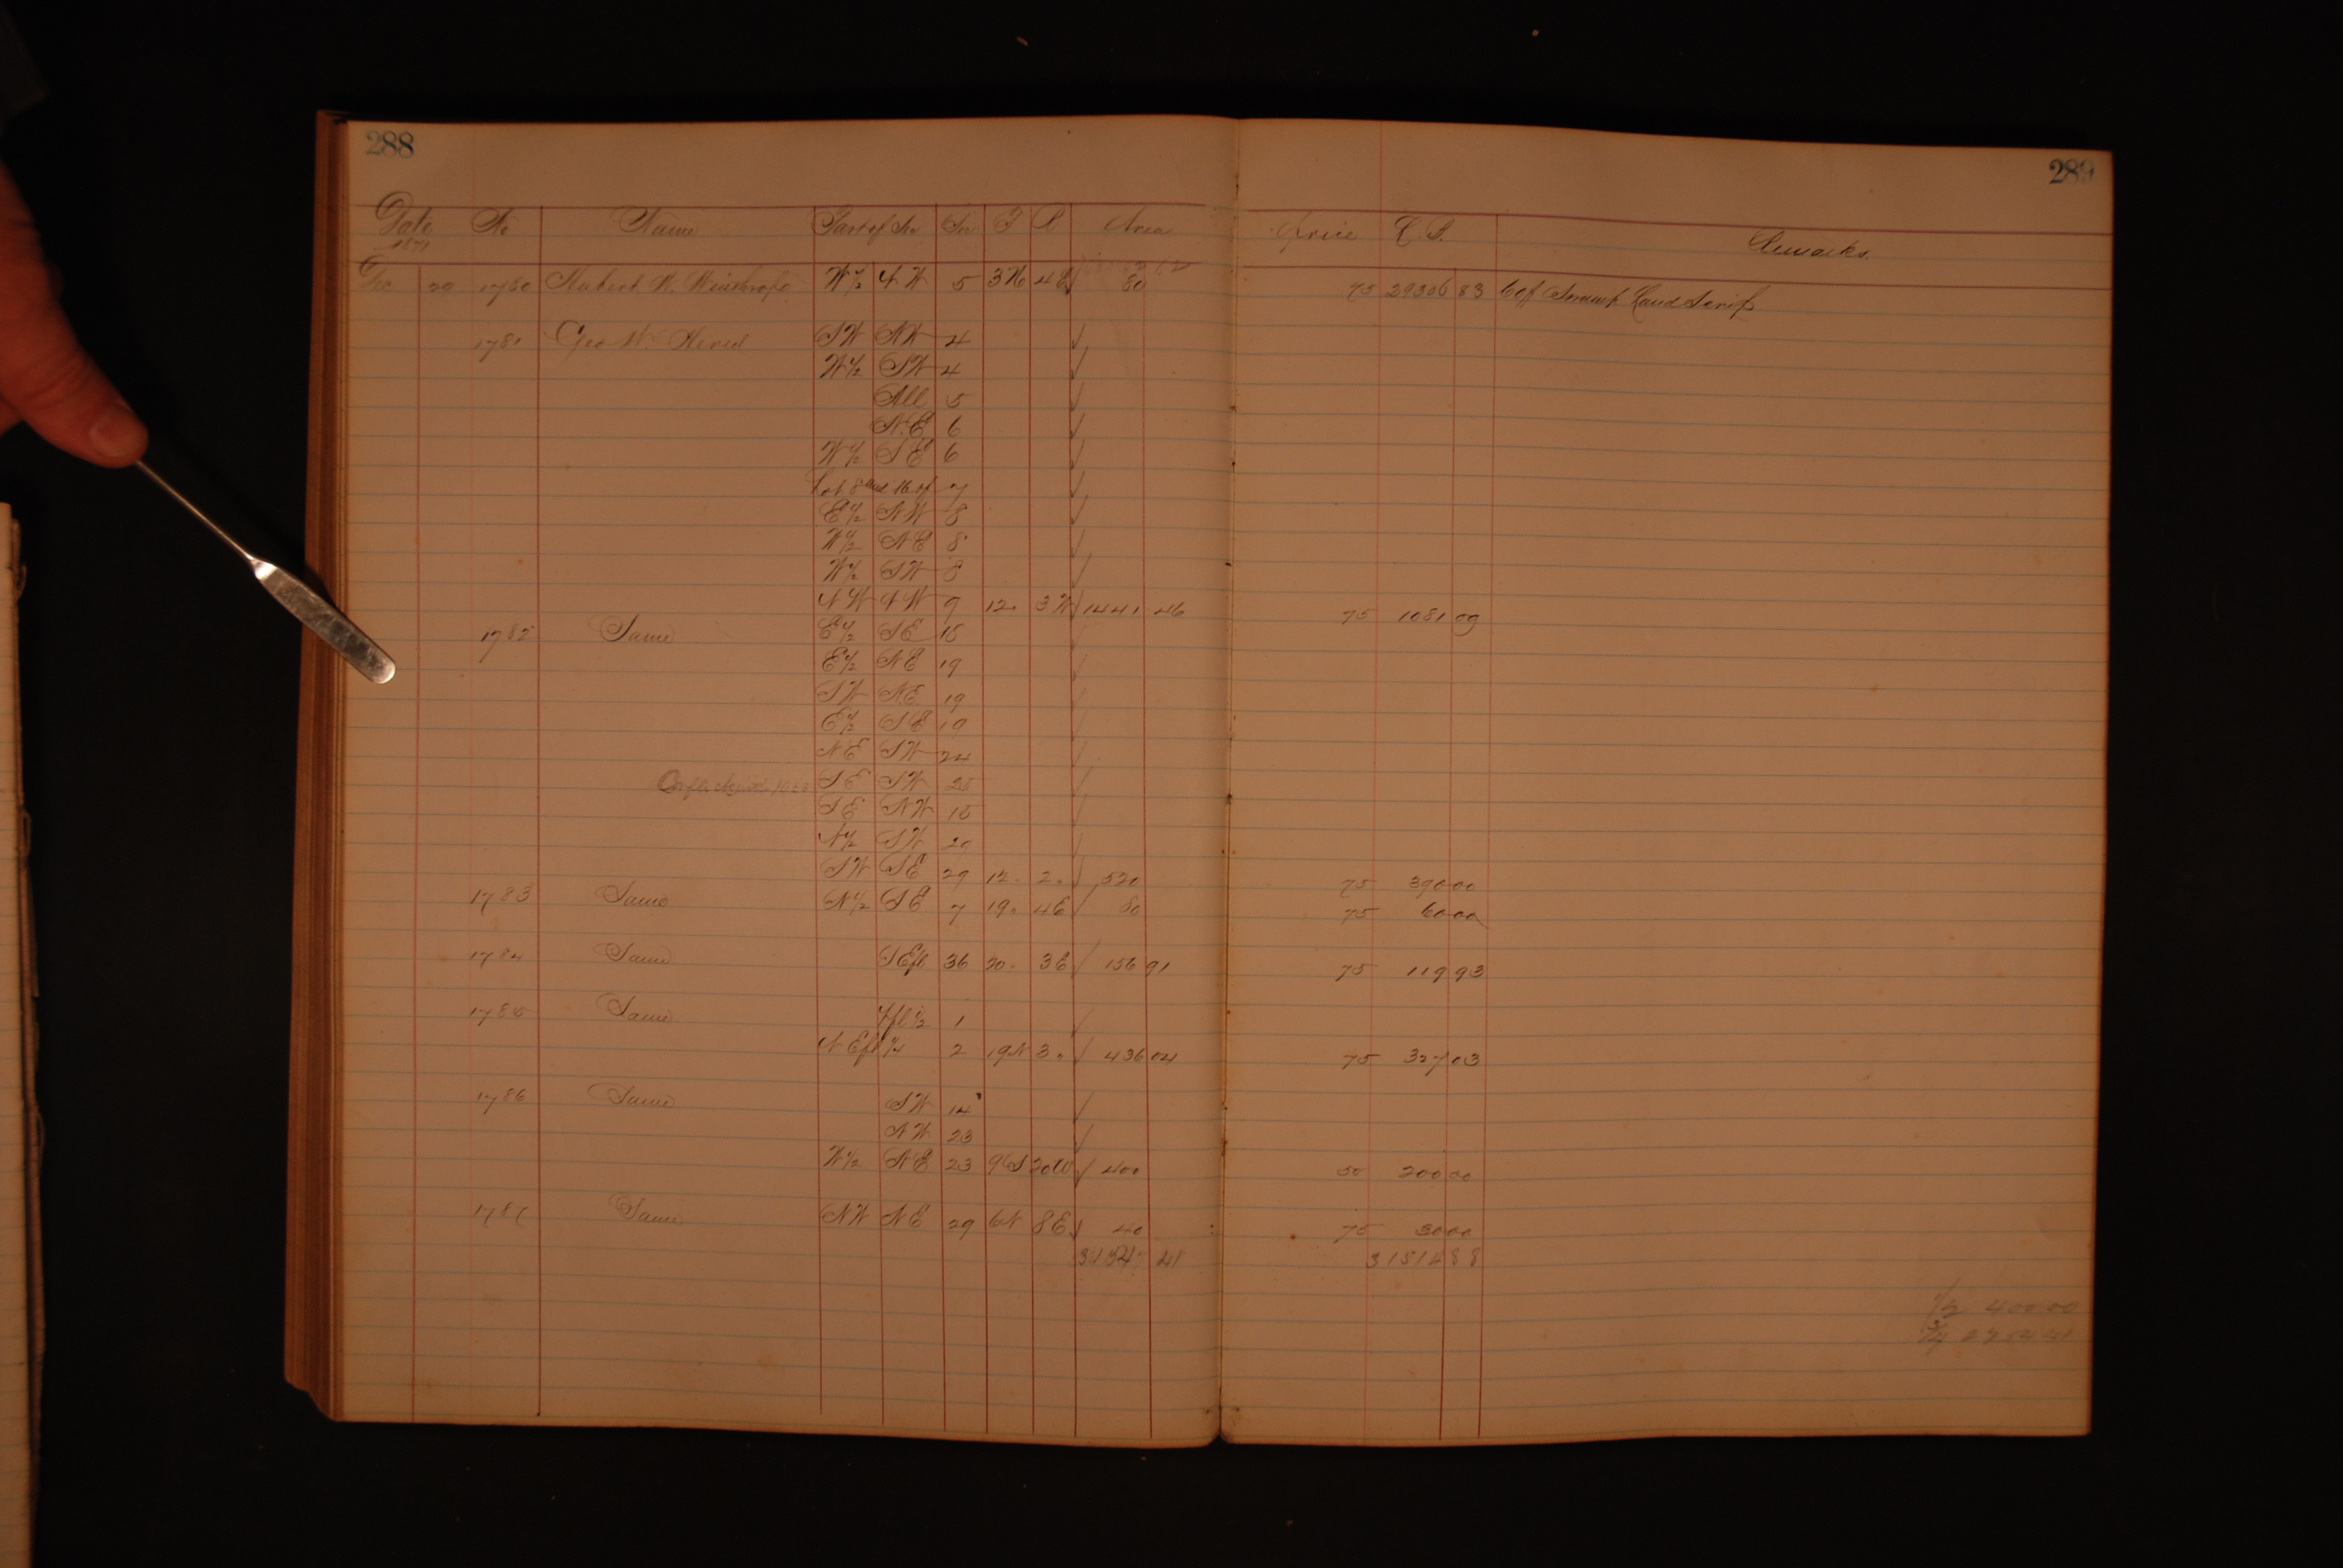 288
289
Date No Name Part of Sec Sec T R Area Price C. P. Remarks.
1871
Dec 20 1780 W½ NW 5 3N 4E 80 75 29306 83 Swamp Land Scrip
1781 Geo W. SW NW 4
W½ SW 4
All 5
N.E 6
W½ SE 6
Lot 8 and 16 of 7
E½ NW 8
W½ NE 8
W½ SW 8
NW NW 9 12. 3W 1441 46 75 1081 09
1782 Same E½ SE 15
E½ NE 19
SW NE 19
E½ SE 19
NE SW 24
SE SW 25
SE NW 15
N½ SW 20
SW SE 29 12. 2. 520 75 390 00
1783 Same N½ SE 7 19. 4E 80 75 60 00
1784 Same SEfl 36 20. 3E 156 91 75 119 93
1785 Same fl ½ 1
NEfl ¼ 2 19N 3. 436 04 75 327 03
1786 Same SW 14
NW 23
W½ NE 23 9S 20W 400 50 200 00
1787 Same NW NE 29 6N 8E 40 75 30 00
3154 41 31514 88
½ 400 00
¾